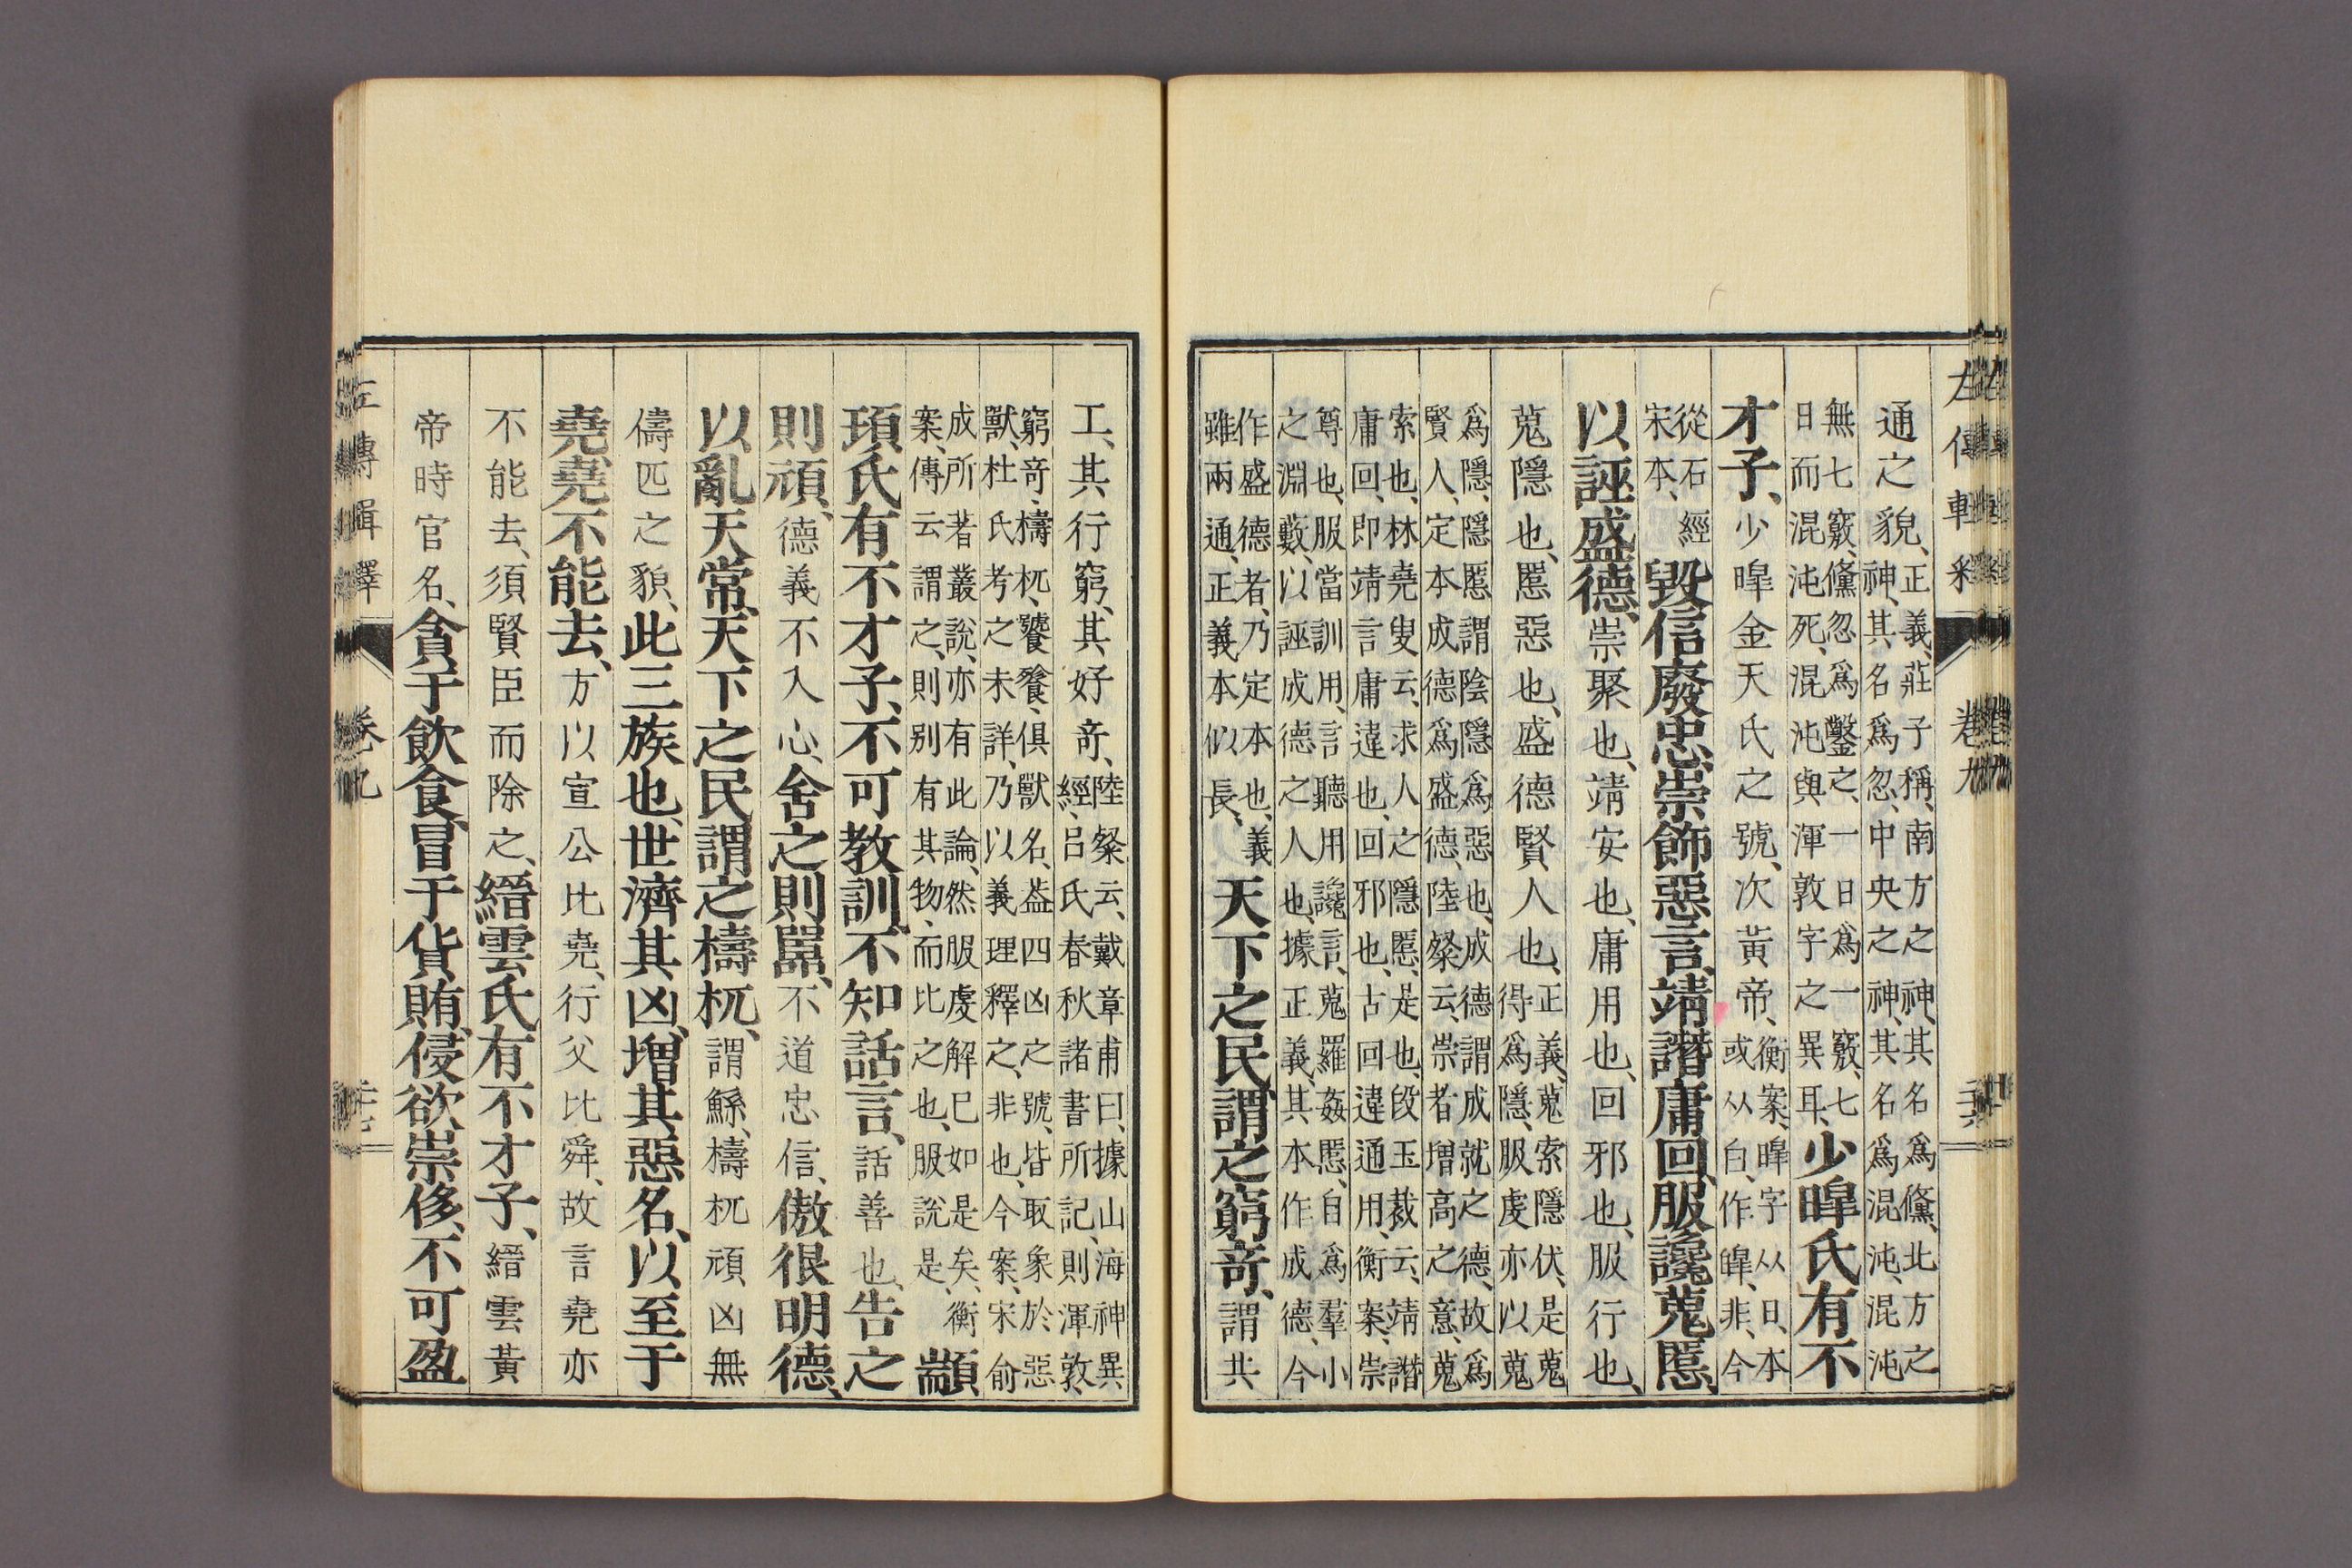 左傳輯釋 卷九 二十六
通之貌、正義、莊子稱、南方之神、其名爲儵、北方之
神、其名爲忽、中央之神、其名爲混沌、混沌
無七竅、儵忽爲鑿之、一日爲一竅、七
日而混沌死、混沌與渾敦字之異耳、少皞氏有不
才子、少皞金天氏之號、次黃帝、衡案、皞字从日、本
或从白、作皡、非、今
從石經
宋本、毀信廢忠、崇飾惡言、靖譖庸回、服讒蒐慝、
以誣盛德、崇聚也、靖安也、庸用也、回邪也、服行也、
蒐隱也、慝惡也、盛德賢人也、正義、蒐索隱伏、是蒐
得爲隱、服虔亦以蒐
爲隱、隱慝謂陰隱爲惡也、成德謂成就之德、故爲
賢人、定本成德爲盛德、陸粲云、崇者增高之意、蒐
索也、林堯叟云、求人之隱慝、是也、段玉裁云、靖譖
庸回、即靖言庸違也、回邪也、古回違通用、衡案、崇
尊也、服當訓用、言聽用讒言、蒐羅姦慝、自爲羣小
之淵藪、以誣成德之人也、據正義、其本作成德、今
作盛德者、乃定本也、義
雖兩通、正義本似長、天下之民謂之窮奇、謂共
工、其行窮、其好奇、陸粲云、戴章甫曰、據山海神異
經、呂氏春秋諸書所記、則渾敦、
窮奇、檮杌、饕餮、俱獸名、葢四凶之號、皆取象於惡
獸、杜氏考之未詳、乃以義理釋之、非也、今案、宋俞
成所著叢說、亦有此論、然服虔解已如是矣、衡
案、傳云謂之、則別有其物、而比之也、服說是、顓
頊氏有不才子、不可教訓、不知話言、話善也、告之
則頑、德義不入心、舍之則嚚、不道忠信、傲很明德、
以亂天常、天下之民謂之檮杌、謂鯀、檮杌頑凶無
儔匹之貌、此三族也、世濟其凶、增其惡名、以至于
堯、堯不能去、方以宣公比堯、行父比舜、故言堯亦
不能去、須賢臣而除之、縉雲氏有不才子、縉雲黃
帝時官名、貪于飲食、冒于貨賄、侵欲崇侈、不可盈
左傳輯釋 卷九 二十七